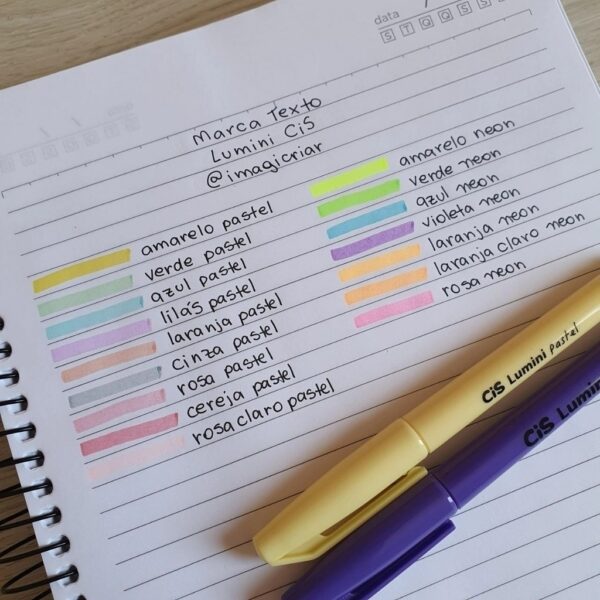 data
S T Q Q S S
Marca Texto
Lumini CiS
@imagicriar
amarelo pastel
verde pastel
azul pastel
lilás pastel
laranja pastel
cinza pastel
rosa pastel
cereja pastel
rosa claro pastel
amarelo neon
verde neon
azul neon
violeta neon
laranja neon
laranja claro neon
rosa neon
CiS Lumini pastel
CiS Lumin